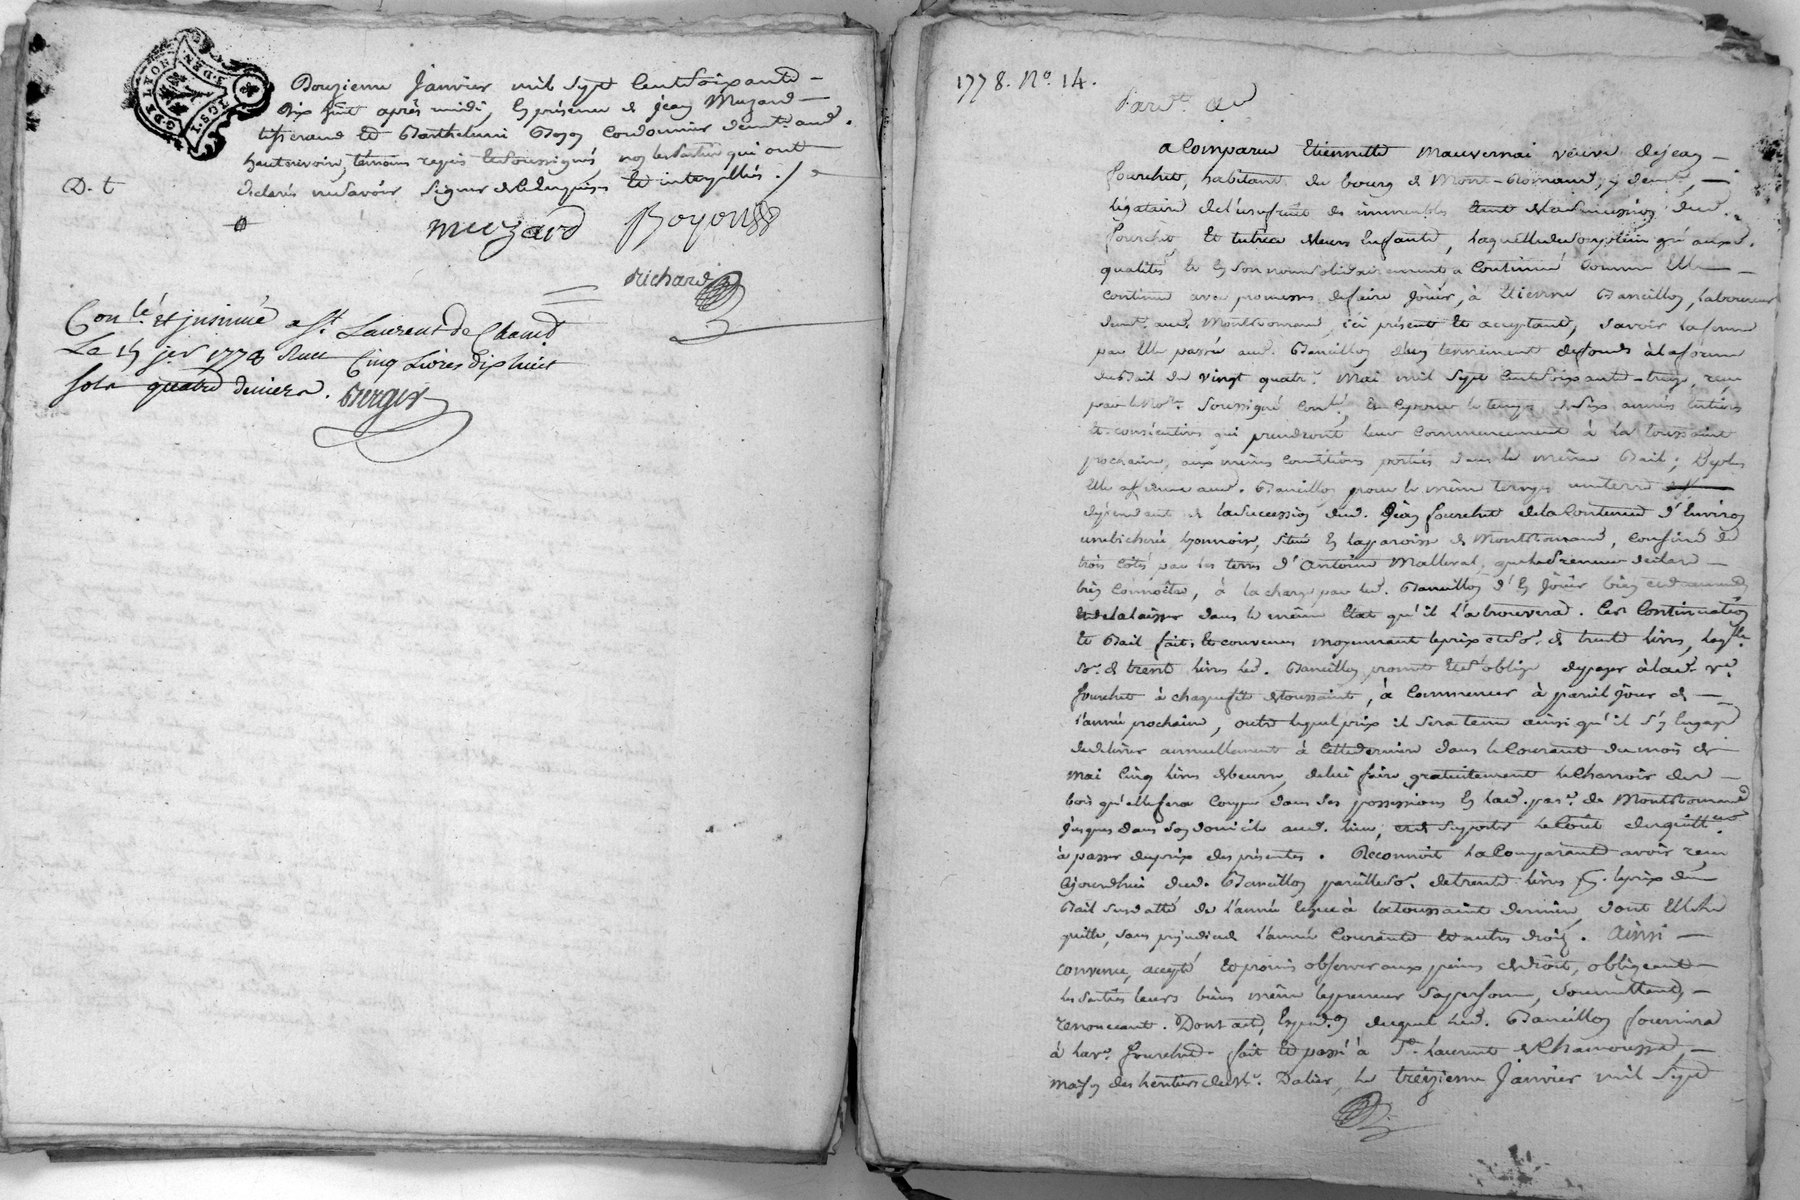 G. DE LYON
Douzieme Janvier mil sept cent soixante
dix huit après midi, en présence de Jean Muzard
tisserand et Barthelemi Boyon cordonnier demt. aud.
hautrivoir, témoins requis et soussignés, non les parties qui ont
déclaré ne savoir signer de ce enquises et interpellées ./.
D. t
muzard Boyon
Richard
Conlé et insinué a St. Laurent de Cham^t
Le 15 jer 1778 Recu Cinq Livres dix huit
sols quatre deniers. Berger
1778. No. 14.
Pardt. a
a Comparu Etiennette Mauvernai veuve de jean
fourchet, habitante du bourg de Mont-Romand, y demte,
légataire de l'usufruit des immeubles de la succession dud.
fourchet, et tutrice de leurs Enfants, laquelle de son plein gré auxd.
qualités et en son nom solidairement a Continué Comme Elle
continue avec promesses de faire jöuir, à Etienne Bancillon, laboureur
demt. aud. Montromand, ici présent et acceptant, savoir la ferme
par Elle passée aud. Bancillon d'un tennement de fonds à la forme
du Bail du vingt quatre. Mai mil sept cent soixante-treize, reçu
par le No.re soussigné Con.lé, Et ce pour le temps de six années entières
et consécutives qui prendront leur Commencement à la toussaint
prochaine, aux mêmes Conditions portées dans le même Bail; De plus
Elle afferme aud. Bancillon pour le même temps une terre
dépendante de la succession dud. Jean fourchet de la Contenue d'Environ
une bicherée lyonnoise, située en la parroisse de Montromand, confinée de
trois côtés par les terres d'Antoine Malleval, que le Preneur déclare
bien connoître, à la charge par led. Bancillon d'En jöuir bien et
et de la laisser dans le même Etat qu'il l'a trouvera. Cette Continuation
et Bail faits et convenus moyennant le prix et So.e de trente livres, laq.lle
So.e de trente livres led. Bancillon promet et s'oblige de payer à lad. v.e
fourchet à chaque fête de toussaint, à Commencer à pareil jöur de
l'année prochaine, outre lequel prix il sera tenu ainsi qu'il s'y Engage
de délivrer annuellement à cette dernière dans le Courant du mois de
mai Cinq livres de beurre, de lui faire gratuitement le Charroir des
bois qu'elle fera Couper dans ses possessions en lad. par.e de Montromand
jusques dans son domicile aud. lieu, et de supporter le Coût des quitt.ces
à passer du prix des présentes. Reconnoit la Comparante avoir reçu
Cejourd'hui dud. Bancillon pareille So.e de trente livres p.r le prix du
Bail susdatté de l'année Echue à la toussaint dernière, dont Elle le
quitte, sans préjudice de l'année Courante et autres droits. Ainsi
convenu, accepté et promis observer aux peines de droit, obligeant
les Parties leurs biens même le preneur sa personne, soumettant,
renonceant. Dont acte, Exped.on duquel led. Bancillon fournira
à la v.e fourchet. fait et passé à St. Laurent de Chamousset,
maison des héritiers du Sr. Dalier, le treizieme Janvier mil sept